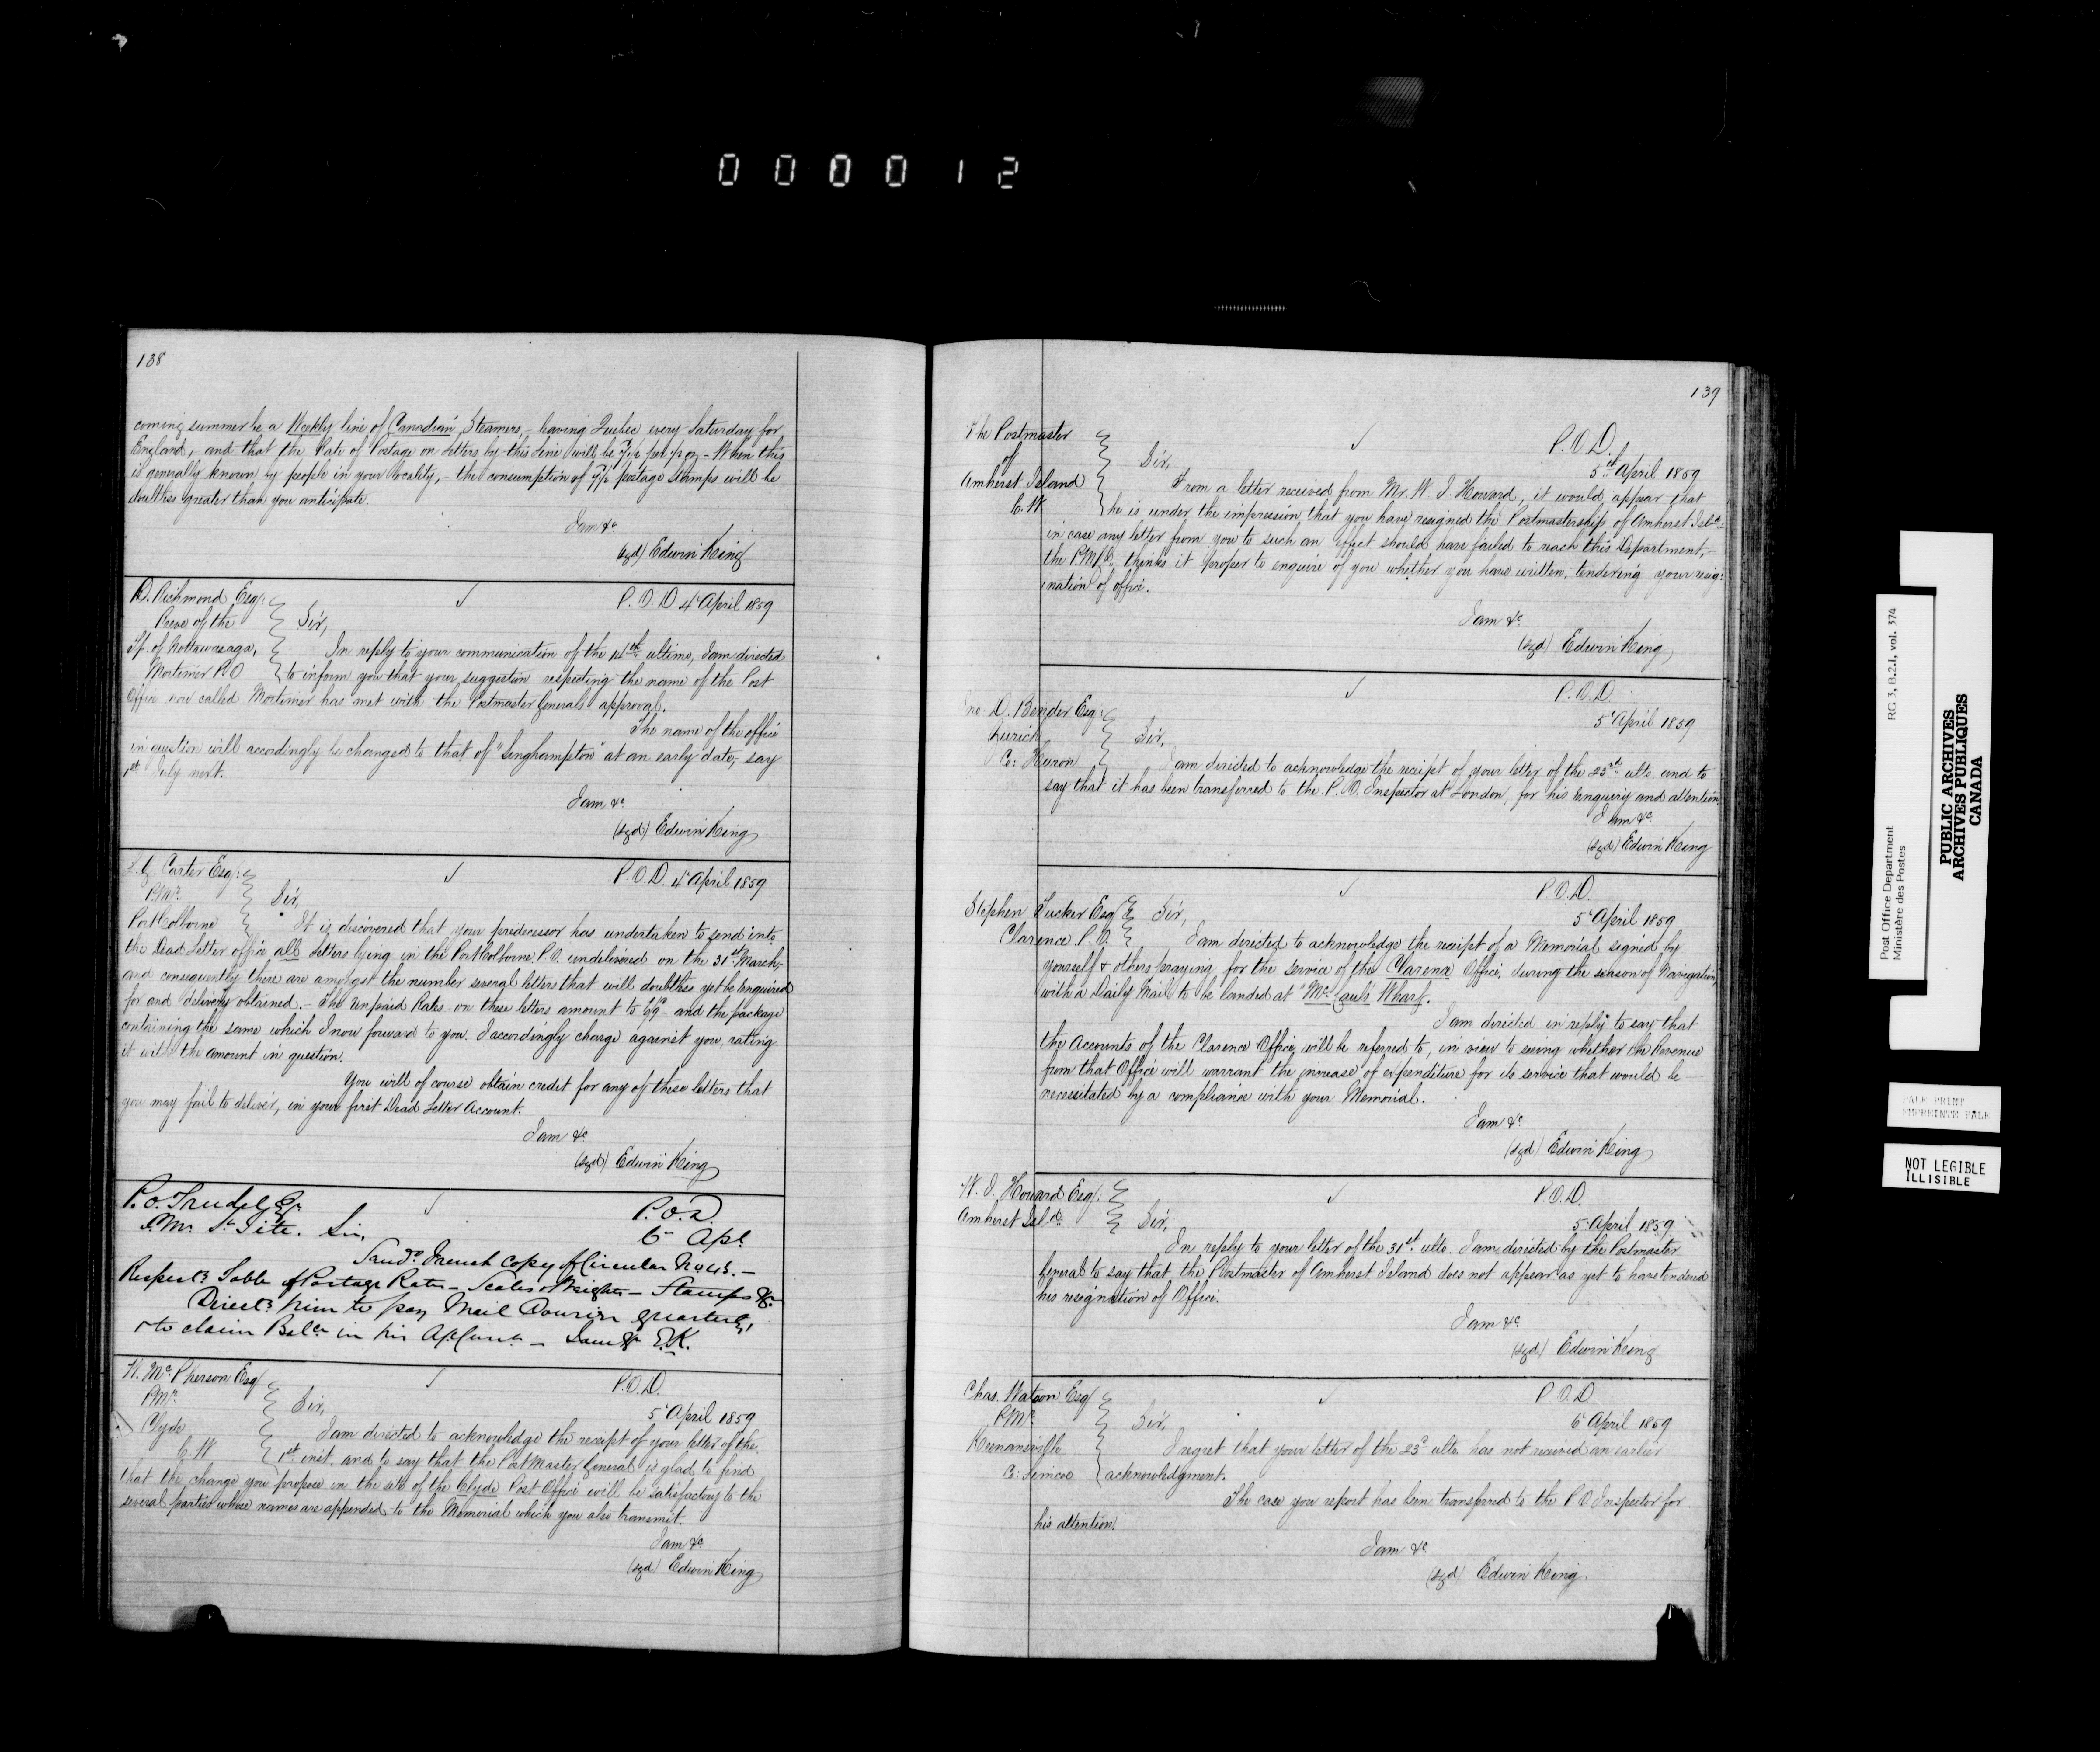 000012
138
coming summer be a Weekly line of Canadian Steamers, - leaving Quebec every Saturday for
England, and that the Rate of Postage on Letters by this Line will be 7½ per ½ oz - When this
is generally known by people in your locality, - the consumption of 7½ postage stamps will be
doubtless greater than you anticipate.
I am &c
(sgd) Edwin King
D. Richmond Esq: P. O. D 4 April 1859
Reeve of the Sir,
Tp. of Nottawasaga, In reply to your communication of the 14th ultimo, I am directed
Mortimer P.O to inform you that your suggestion respecting the name of the Post
Office now called Mortimer has met with the Postmaster Generals approval.
The name of the office
in question will accordingly be changed to that of "Singhampton" at an early date, say
1st July next.
I am &c.
(sgd) Edwin King
Carter Esq: P.O.D. 4 April 1859
P.Mr. Sir,
Port Colborne It is discovered that your predecessor has undertaken to send into
the Dead Letter office all letters lying in the Port Colborne P.O. undelivered on the 31st March,
and consequently there are amongst the number several letters that will doubtless yet be enquired
for and delivery obtained. - The Unpaid Rates on these letters amount to and the package
containing the same which I now forward to you. I accordingly charge against you, rating
it with the amount in question.
You will of course obtain credit for any of these letters that
you may fail to deliver, in your first Dead Letter Account.
I am &c
(sgd) Edwin King
P. O. Trudel Esqr P.O.D.
P.Mr St Tite. Sir, 6 Apl.
French copy of Circular No 43. -
Respectg Table of Postage Rates - Scales & Weights - Stamps &c.
Directg him to pay Mail Courier quarterly,
& to claim Balce in his - I am &c E.K.
W. McPherson Esq P.O.D.
P.Mr. Sir, 5 April 1859
Clyde I am directed to acknowledge the receipt of your letter of the
C.W 1st inst. and to say that the Post Master General is glad to find
that the change you propose in the site of the Clyde Post Office will be satisfactory to the
several parties whose names are appended to the Memorial which you also transmit.
I am &c
(sgd) Edwin King
139
The Postmaster P.O.D.
of Sir, 5th April 1859
Amherst Island From a letter received from Mr. W. J. Howard, it would appear that
C.W he is under the impression that you have resigned the Postmastership of Amherst Isld:
in case any letter from you to such an effect should have failed to reach this Department, -
the P.M.G. thinks it proper to enquire of you whether you have written, tendering your resig:
:nation of office.
I am &c
(sgd) Edwin King
D. Bender Esq: P.O.D.
Zurich Sir, 5 April 1859
Co: Huron I am directed to acknowledge the receipt of your letter of the 25th ulto. and to
say that it has been transferred to the P.O. Inspector at London, for his enquiry and attention
I am &c
(sgd) Edwin King
Stephen Tucker Esq Sir, P.O.D.
5 April 1859
Clarence P.O. I am directed to acknowledge the receipt of a Memorial signed by
yourself & others praying for the service of the Clarence Office, during the season of Navigation,
with a Daily Mail to be landed at "McCaul's Wharf.
I am directed in reply to say that
the Accounts of the Clarence Office will be referred to, in view to seeing whether the Revenue
from that Office will warrant the increase of expenditure for its service that would be
necessitated by a compliance with your Memorial.
I am &c
(sgd) Edwin King
W. J. Howard Esq: P.O.D.
Amherst Isld. Sir, 5 April 1859
In reply to your letter of the 31st. ulto. I am directed by the Postmaster
General to say that the Postmaster of Amherst Island does not appear as yet to have tendered
his resignation of Office.
I am &c
(sgd) Edwin King
Chas. Watson Esq P.O.D
P.Mr Sir, 6 April 1859
Keenansville I regret that your letter of the 23d ulto. has not received an earlier
Co: Simcoe acknowledgment.
The case you report has been transferred to the P.O. Inspector for
his attention.
I am &c
(sgd) Edwin King
Post Office Department RG 3, B.2.1, vol. 374
Ministère des Postes
PUBLIC ARCHIVES
ARCHIVES PUBLIQUES
CANADA
PALE PRINT
IMPREINTE PALE
NOT LEGIBLE
ILLISIBLE